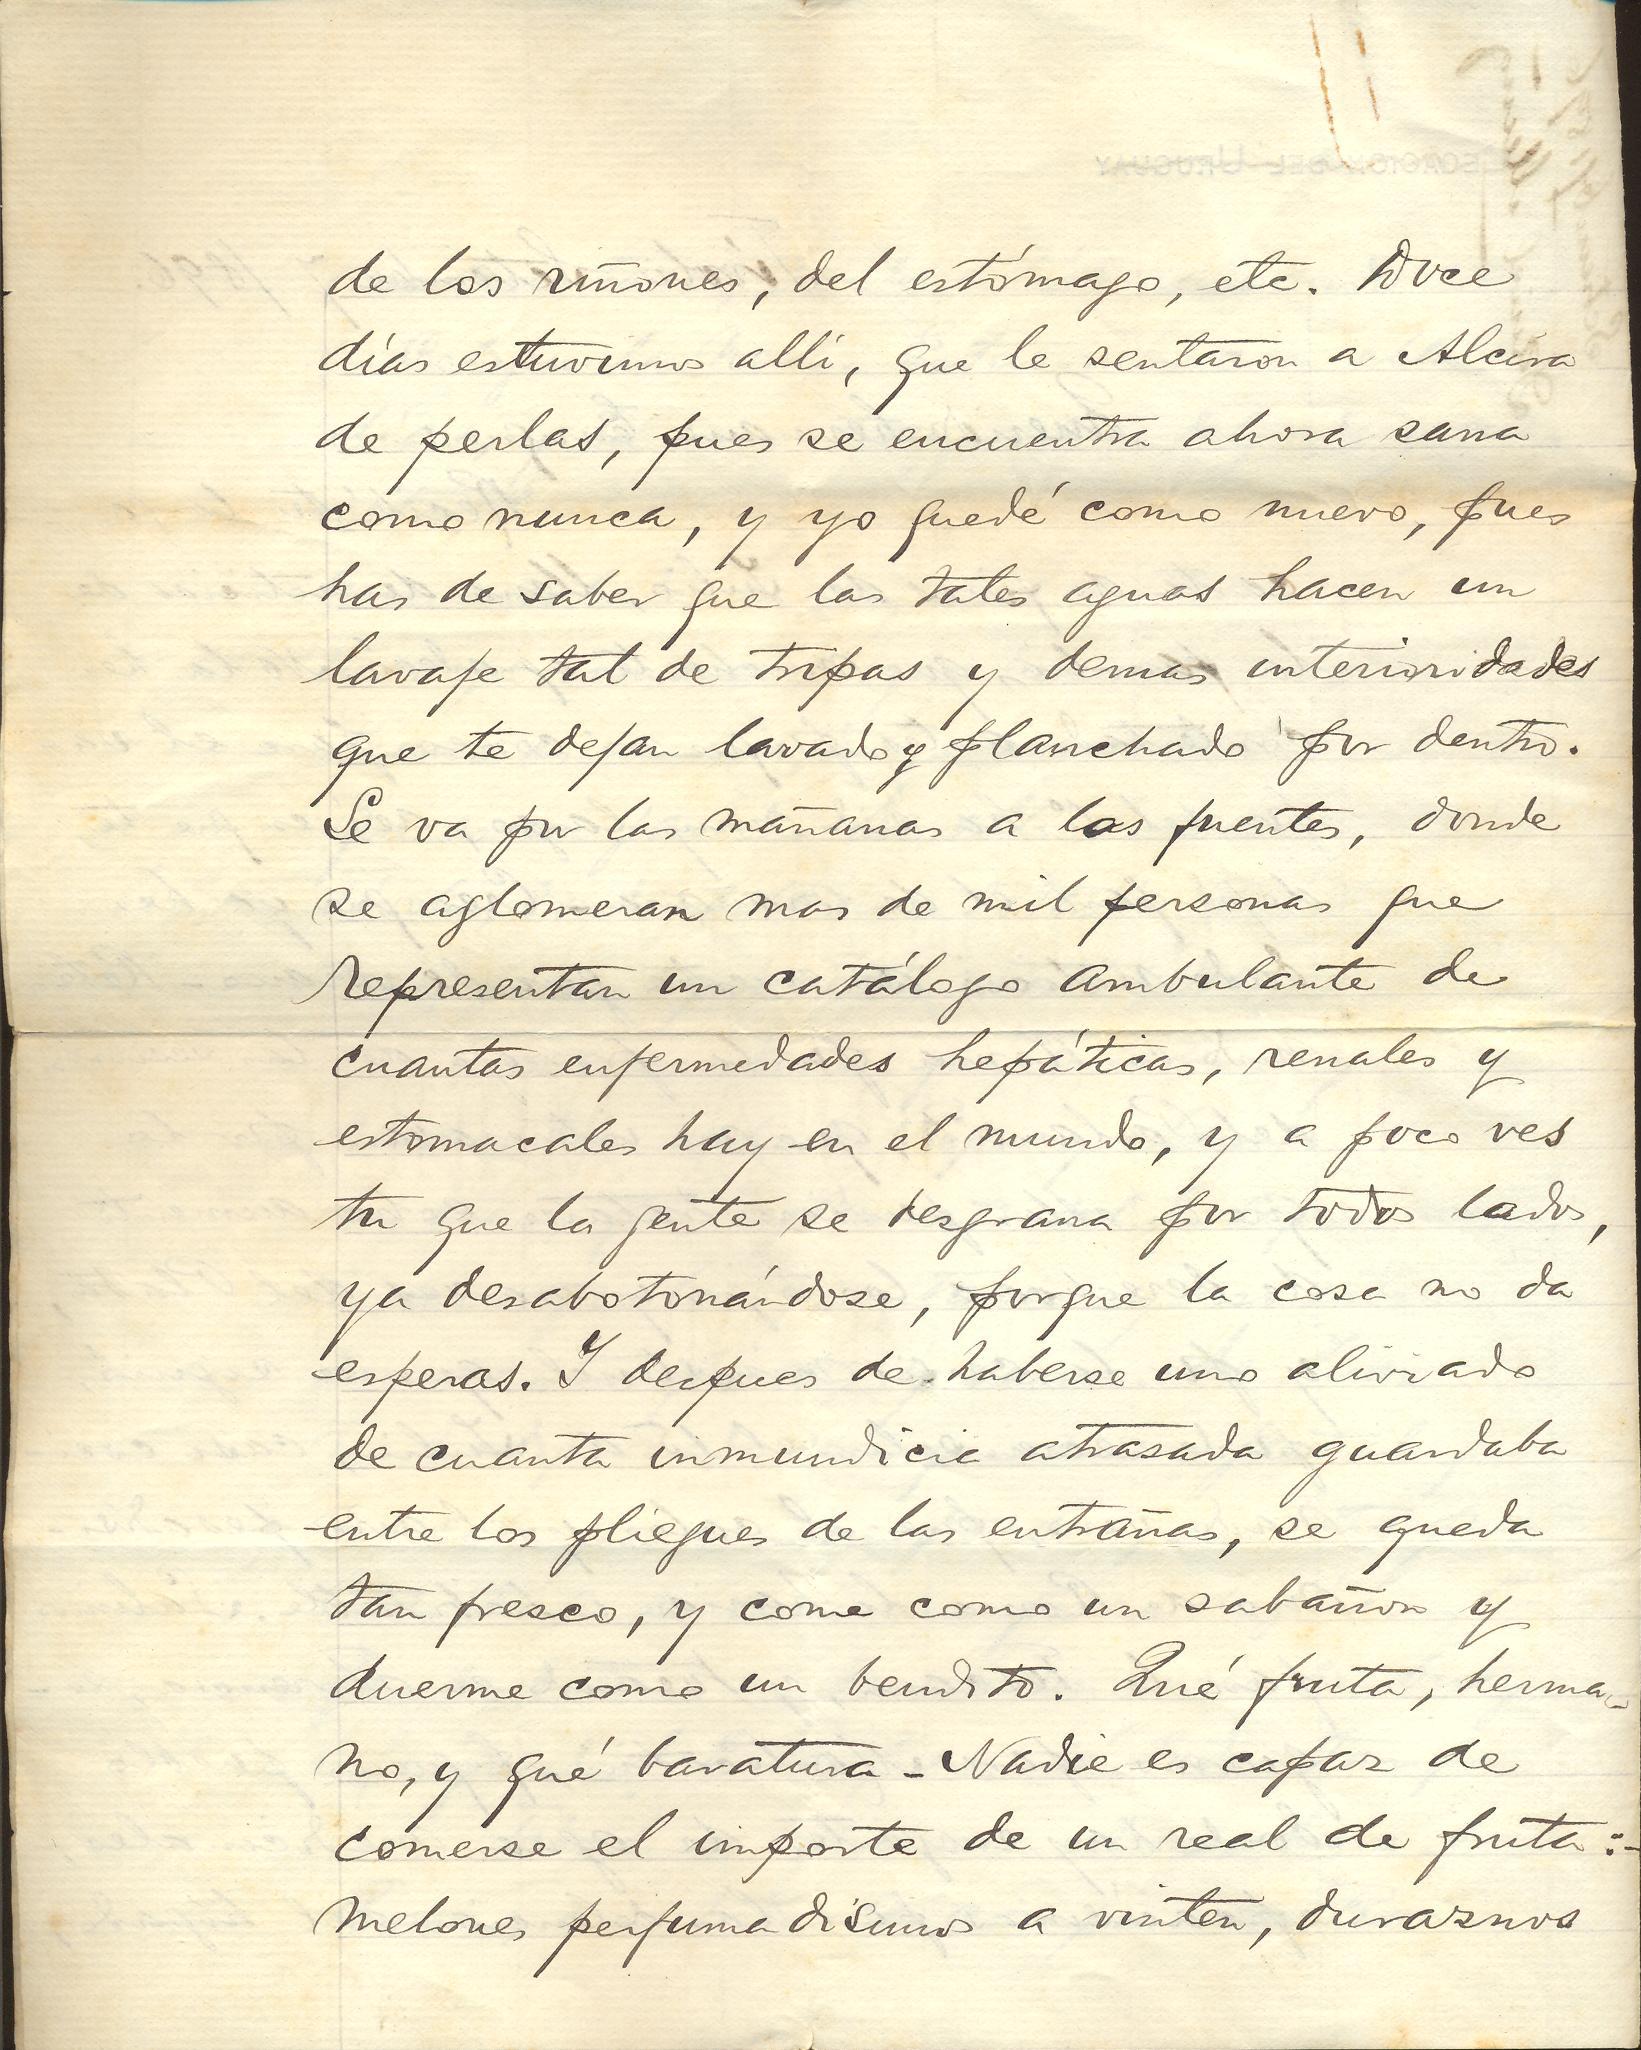 de los riñones, del estómago, etc. Doce
días estuvimos allí, que le sentaron a Alcira
de perlas, pues se encuentra ahora sana
como nunca, y yo quedé como nuevo, pues
has de saber que las tales aguas hacen un
lavaje tal de tripas y demas interioridades
que te dejan lavado y planchado por dentro.
Se va por las mañanas a las fuentes, donde
se aglomeran mas de mil personas que
representan un catálogo ambulante de
cuantas enfermedades hepáticas, renales y
estomacales hay en el mundo, y a poco ves
tu que la gente se desgrana por todos lados,
ya desabotonándose, porque la cosa no da
esperas. Y despues de haberse uno aliviado
de cuanta inmundicia atrasada guardaba
entre los pliegues de las entrañas, se queda
tan fresco, y come como un sabañon y
duerme como un bendito. Qué fruta, herma-
no, y qué baratura - Nadie es capaz de
comerse el importe de un real de fruta:-
melones perfumadisimos a vinten, duraznos